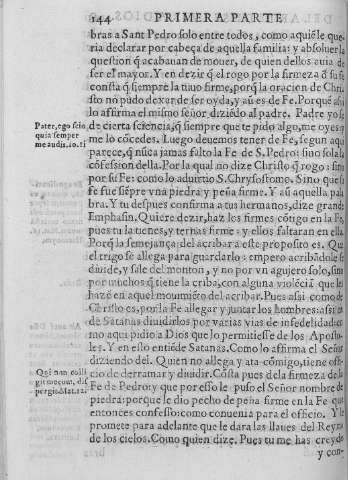 144 PRIMERA PARTE
bras a Sant Pedro solo entre todos, como aquiẽ le que-
ria declarar por cabeça de aquella familia: y absoluer la
question q̃ acabauan de mouer, de quien dellos auia de
ser el mayor. Y en dezir q̃ el rogo por la firmeza ỡ su fe
cõsta q̃ siempre la tiuo firme, porq̃ la oracion de Chri-
sto no pudo dexar de ser oyda, y aũ es de Fe. Porque assi
lo affirma el mismo señor diziẽdo al padre. Padre yo se
Pater, ego scio
quia semper
me audis. io. 11
de cierta sciencia, q̃ siempre que te pido algo, me oyes y
me lo cõcedes. Luego deuemos tener de Fe, segun aqui
parece, q̃ nũca jamas falto la Fe de S. Pedro: sino sola la
cõfession della. Por la qual no dize Christo q̃ rogo: sino
por su Fe: como lo aduirtio S. Chrysostomo. Sino que su
fe fue siẽpre vna piedra y peña firme. Y aũ aquella pala
bra. Y tu despues confirma a tus hermanos, dize grande
Emphasin. Quiere dezir, haz los firmes cõtigo en la Fe,
pues tu la tienes, y ternas firme: y ellos faltaran en ella.
Porq̃ la semejança del acribar a este proposito es. Que
el trigo se allega para guardarlo: empero acribãdole se
diuide, y sale del monton, y no por vn agujero solo, sino
por muchos q̃ tiene la criba, con alguna violẽcia que le
hazẽ en aquel mouimiẽto del acribar. Pues assi como de
Christo es, por la Fe allegar y juntar los hombres: assi es
de Satanas diuidirlos por varias vias de infedelidad: co
mo aqui pidio a Dios que lo permitiesse de los Aposto-
les. Y en ello entiẽde Satanas. Como lo affirma el Señor
diziendo del. Quien no allega y ata cõmigo, tiene offi-
Qui non colli-
git mecum, dis
pergit. Mat. 12.
cio de derramar y diuidir. Cõsta pues d̃ la firmeza de la
Fe de Pedro: y que por esso le puso el Señor nombre de
piedra: porque le dio pecho de peña firme en la Fe que
entonces confesso: como conuenia para el officio. Y le
promete para adelante que le dara las llaues del Reyno
de los cielos. Como quien dize. Pues tu me has creydo
y con-